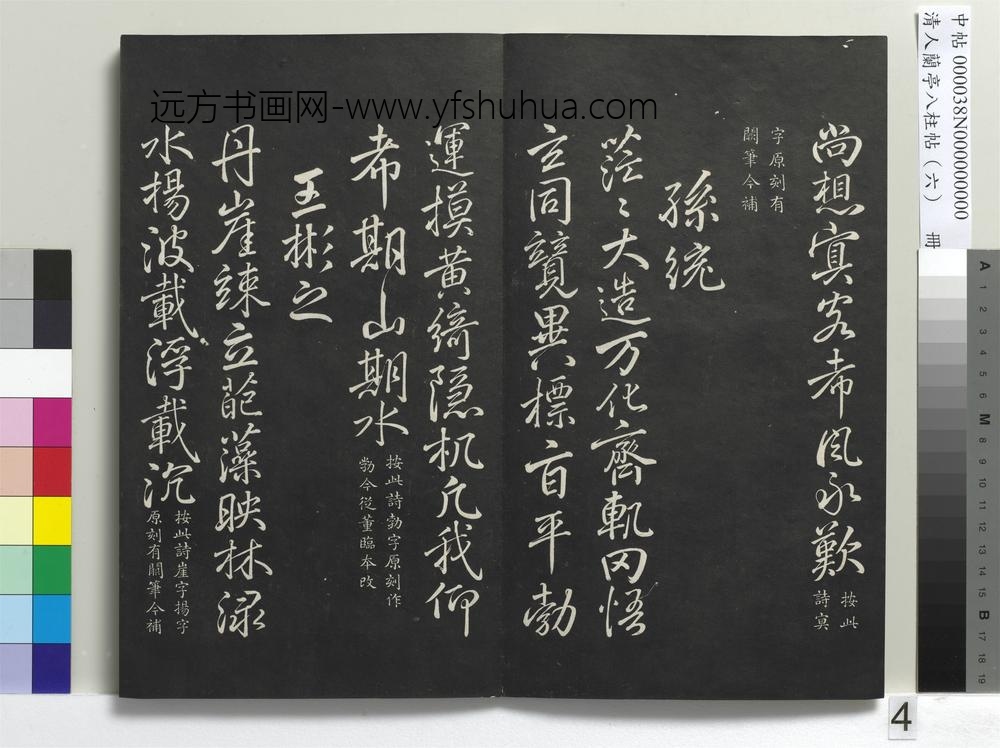 尚想冥客希風永歎按此詩冥
字原刻有闕筆今補
孫統
茫〻大造万化齊軌罔悟
玄同競異摽旨平勃
運摸黄綺隐机凢我仰
希期山期水按此詩勃字原刻作勃今從董臨本改
王彬之
丹崖竦立葩藻映林渌
水揚波載浮載沉按此詩崖字揚字原刻有闕筆今補
远方书画网-www.yfshuhua.com
中帖 000038N000000000
清人蘭亭八柱帖（六） 冊
A 1 2 3 4 5 6 M 8 9 10 11 12 13 14 15 B 17 18 19
4